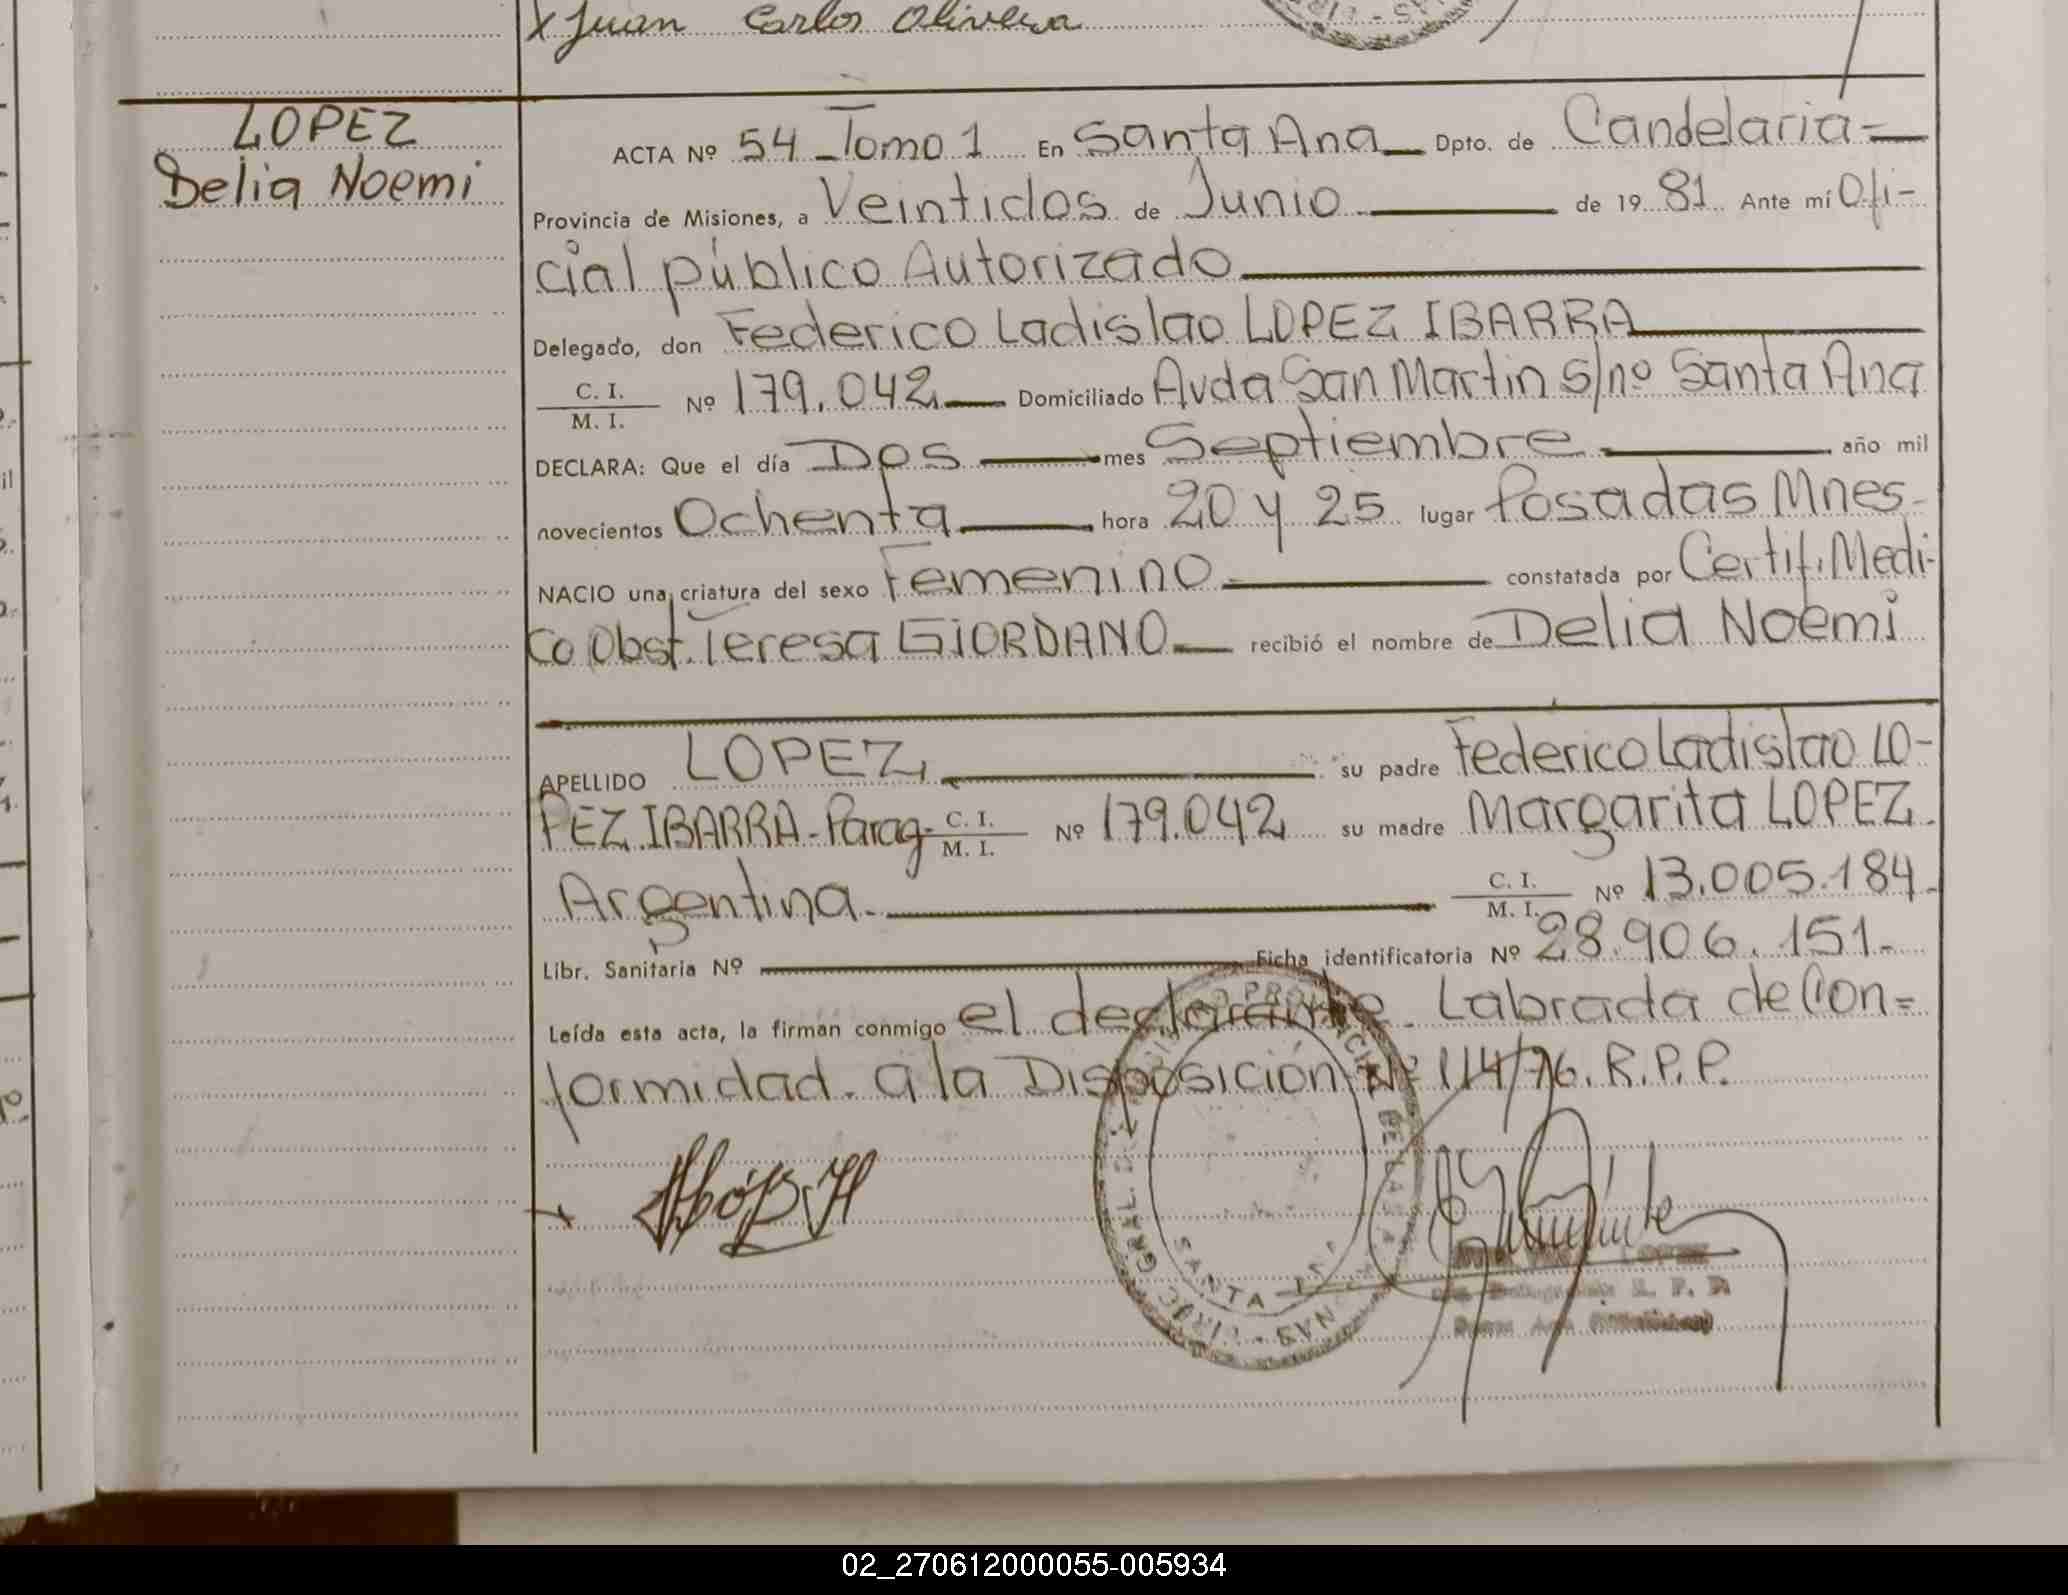 x Juan Carlos Olivera
LOPEZ
Delia Noemi
ACTA Nº 54 Tomo 1 En Santa Ana Dpto. de Candelaria
Provincia de Misiones, a Veintidos de Junio de 1981 Ante mí Ofi-
cial público Autorizado
Delegado, don Federico Ladislao LOPEZ IBARRA
C. I.
M. I. Nº 179.042 Domiciliado Avda San Martin s/nº Santa Ana
DECLARA: Que el día Dos mes Septiembre año mil
novecientos Ochenta hora 20 y 25 lugar Posadas Mnes
NACIO una criatura del sexo Femenino constatada por Certif. Medi-
co Obst. Teresa GIORDANO recibió el nombre de Delia Noemi
APELLIDO LOPEZ, su padre Federico Ladislao LO-
PEZ IBARRA - Parag- C. I. M. I. Nº 179.042 su madre Margarita LOPEZ.
Argentina. C. I. M. I. Nº 13.005.184.
Libr. Sanitaria Nº Ficha identificatoria Nº 28.906.151.-
Leída esta acta, la firman conmigo el declarante. Labrada de Con=
formidad. a la Disposición Nº 114/76. R.P.P.
SANTA ANA
LOPEZ
R. P. P.
02_270612000055-005934